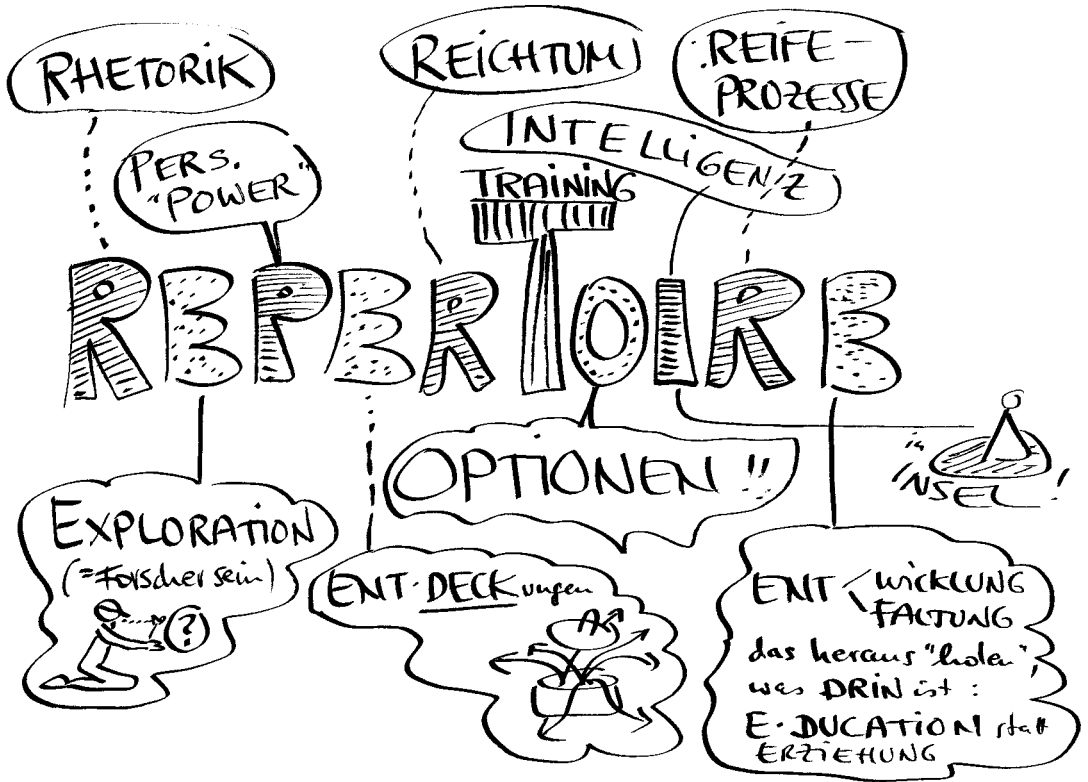 RHETORIK
REICHTUM
REIFE-
PROZESSE
PERS.
"POWER"
INTELLIGENZ
TRAINING
REPERTOIRE
OPTIONEN
in
'NSEL!
EXPLORATION
(=Forscher sein)
?
ENT·DECKungen
ENT WICKLUNG
FALTUNG
das heraus "holen",
was DRIN ist:
E·DUCATION statt
ERZIEHUNG